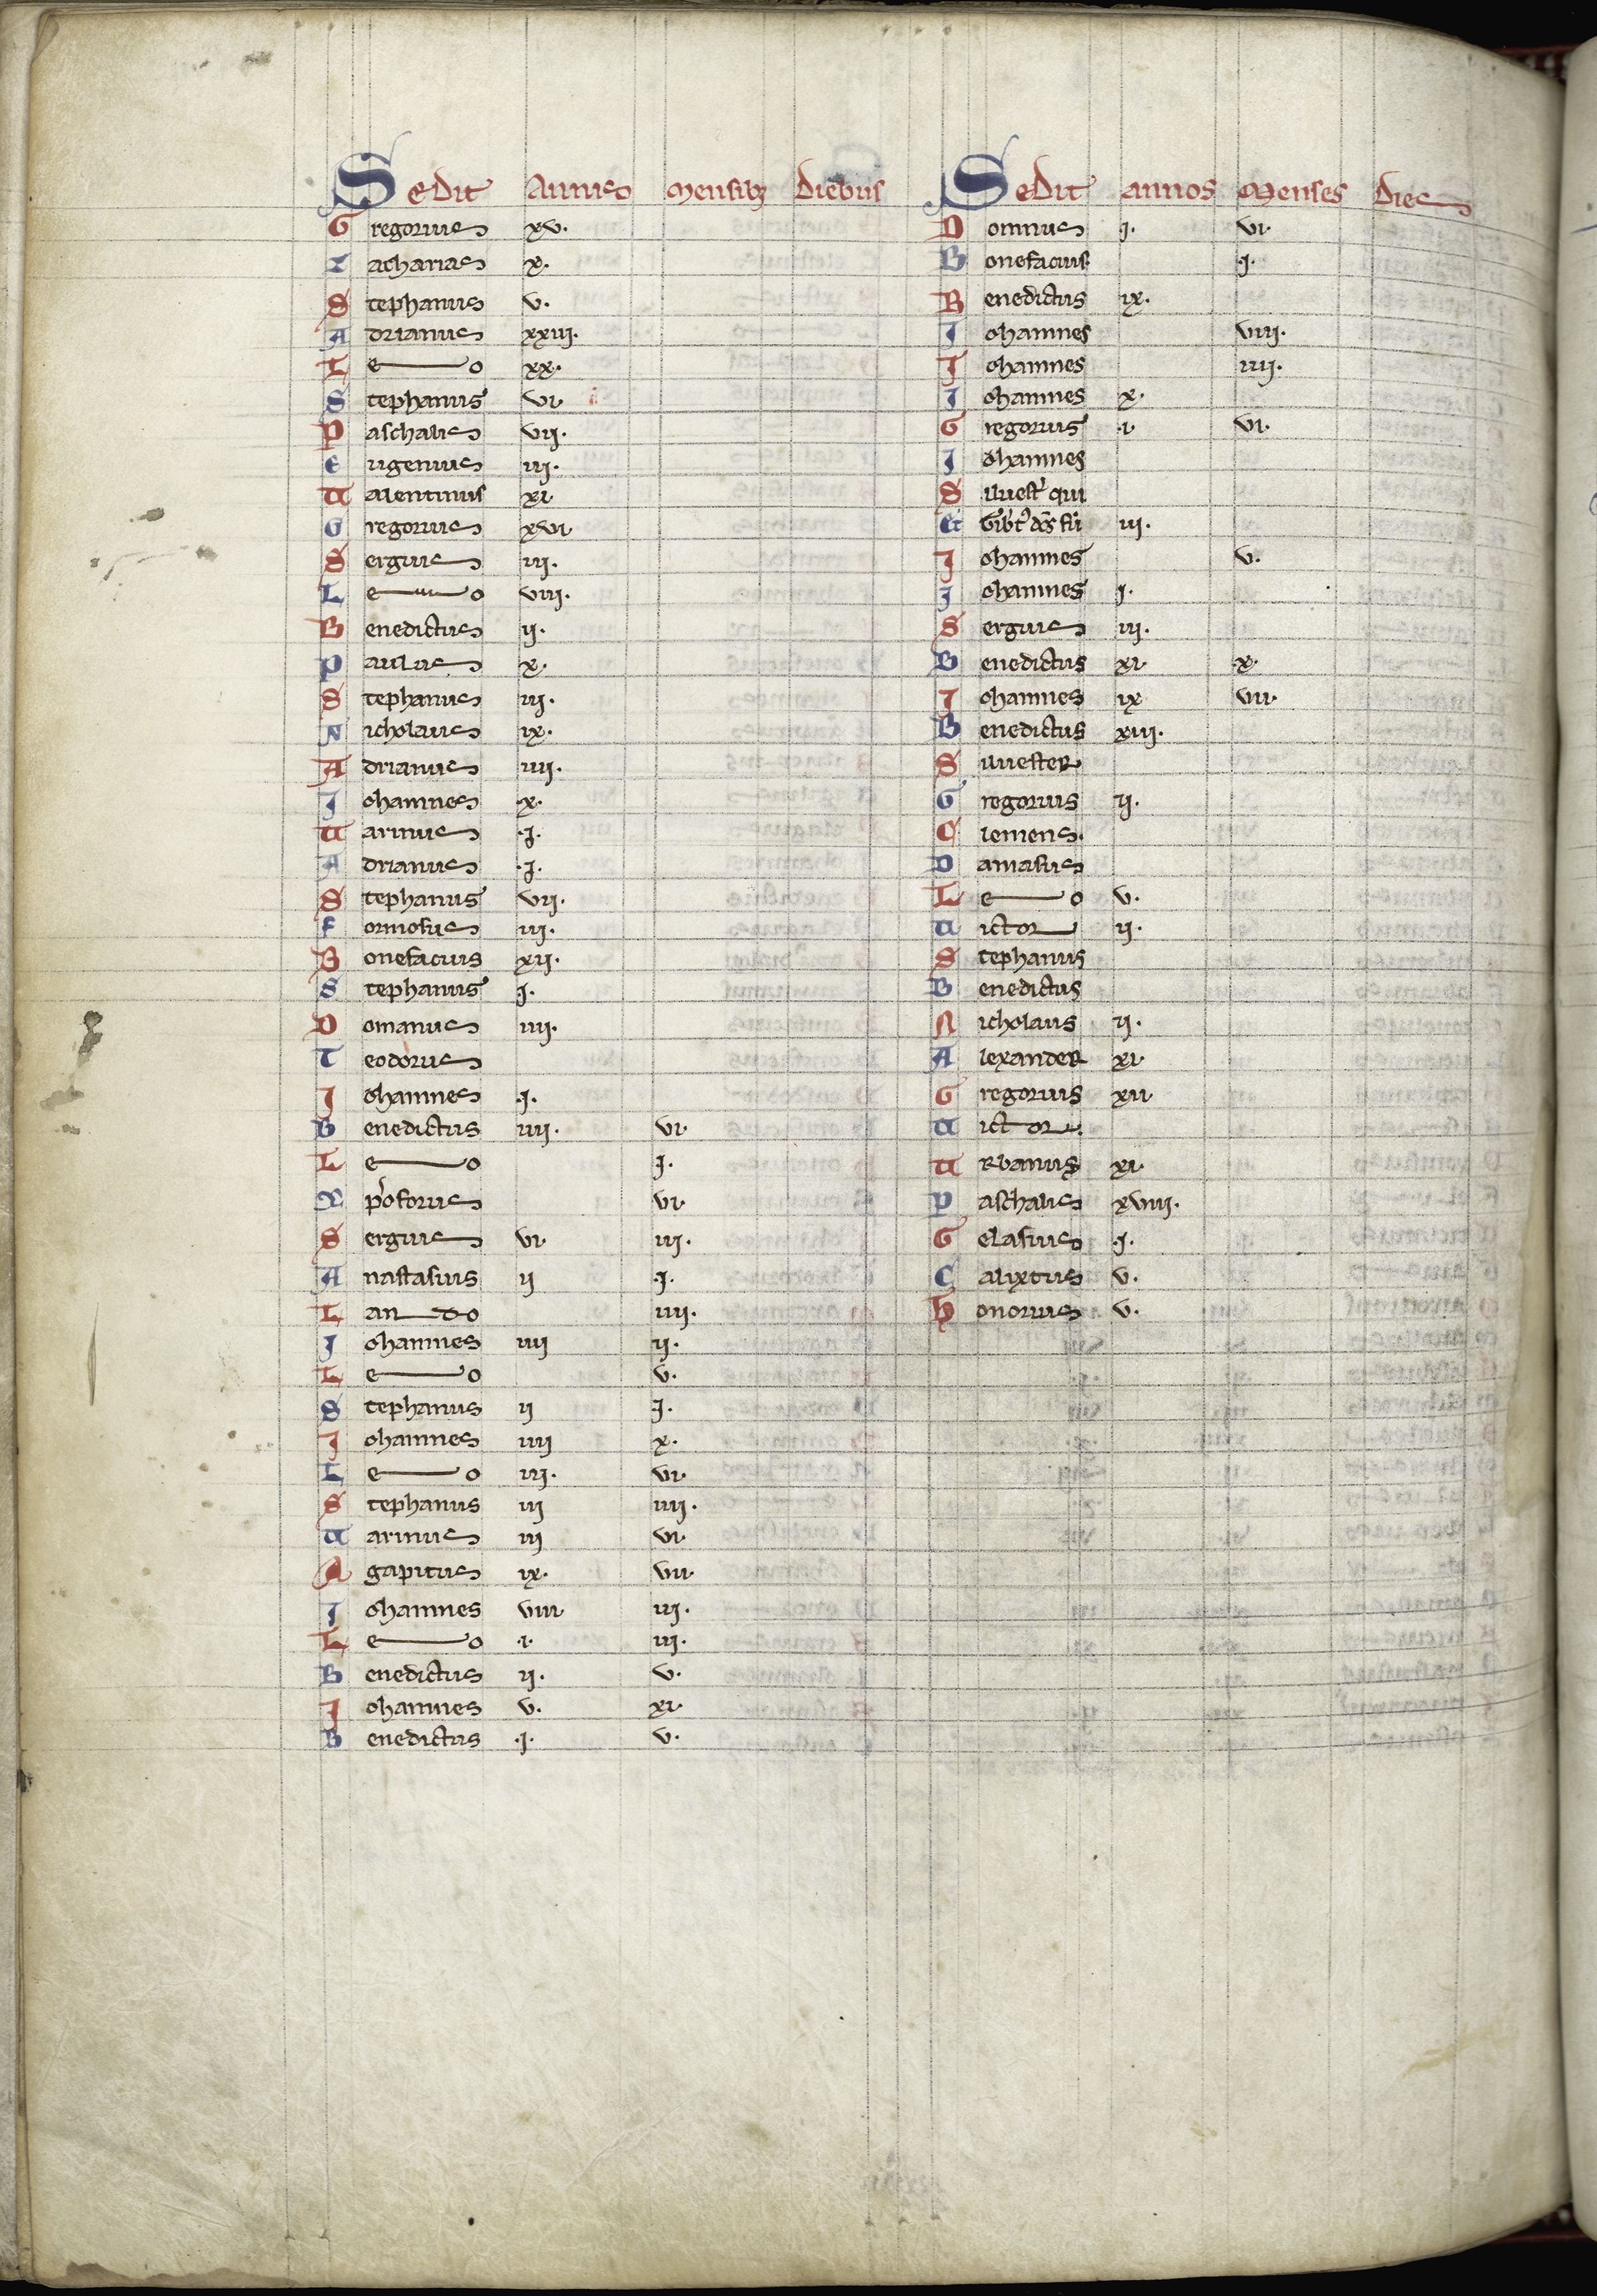 Sedit Annis Mensibꝫ Diebus
Gregorius xv.
Zacharias x.
Stephanus v.
Adrianus xxiii.
Leo xx.
Stephanus vi
Paschalis vii.
Eugenius iii.
Ualentinus xi
Gregorius xvi
Sergius iii.
Leo viii.
Benedictus ii.
Paulus x.
Stephanus iii.
Nicholaus ix.
Adrianus iiii.
Johannes x.
Marinus .i.
Adrianus .i.
Stephanus vii.
Formosus iii.
Bonefacius xii.
Stephanus .i.
Domanus iiii.
Teodorus
Johannes .i.
Benedictus iiii. vi
Leo i.
Xp̄oforus vi
Sergius vi iii.
Anastasius ii .i.
Lando iiii.
Johannes iiii ii.
Leo v.
Stephanus ii i.
Johannes iiii x.
Leo iii. vi.
Stephanus iii iiii.
Marinus iii vi
Agapitus ix. vii
Johannes viii iii.
Leo .i. iii.
Benedictus ii. v.
Johannes v. xi
Benedictus .i. v.
Sedit annos Menses Dies
Domnus i. vi.
Bonefacius .i.
Benedictus ix.
Johannes viii.
Johannes iiii.
Johannes x.
Gregorius .i. vi.
Johannes
Siluest' qui
Et
iii.
Johannes v.
Johannes i.
Sergius iii.
Benedictus xi x.
Johannes ix vii
Benedictus xiii.
Siluester
Gregorius ii.
Clemens.
Damasus
Leo v.
Uictor ii.
Stephanus
Benedictus
Nicholaus ii.
Alexander xi
Gregorius xii
Uictor.
Urbanus xi
Paschalis xviiii.
Gelasius .i.
Calixtus v.
Honorius v.